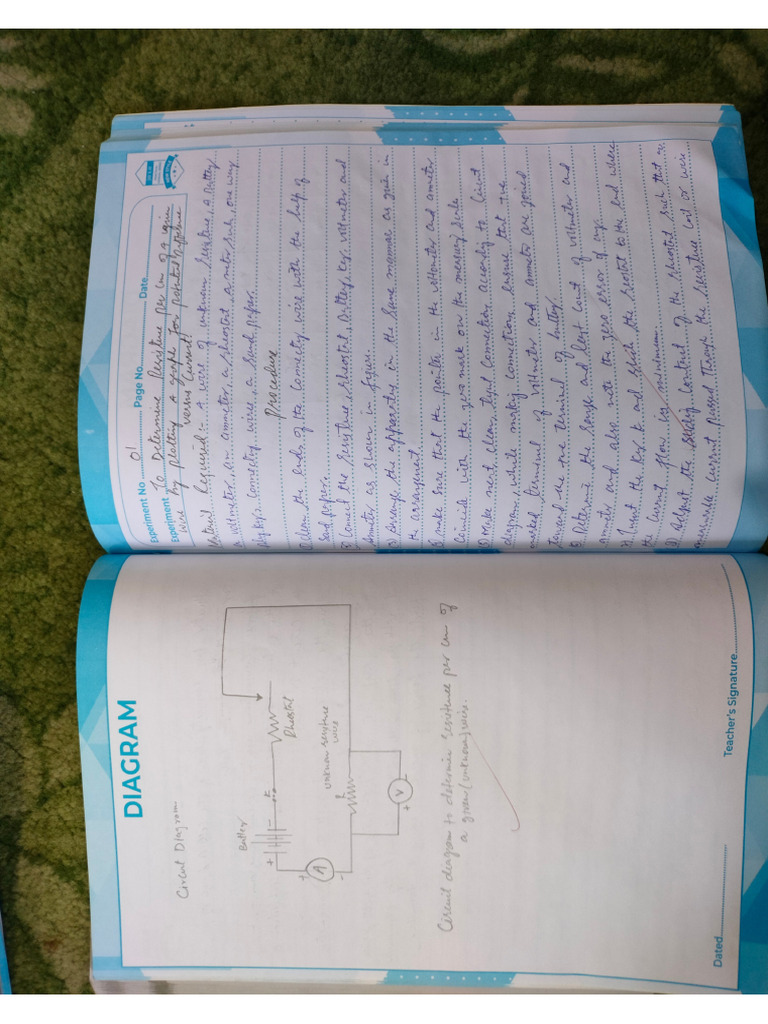 DIAGRAM
Circuit Diagram
Battery
+ -
K
Rheostat
+ A -
unknown resistance
wire
+ V -
Circuit diagram to determine resistance per cm of
a given (unknown) wire.
Dated
Teacher's Signature
Experiment No 01 Page No. Date
Experiment To Determine Resistance per cm of a given
wire by plotting A graph for potential difference
versus Current
Material Required:- A wire of unknown Resistance, A Battery
A voltmeter, an ammeter, a rheostat, a meter scale, one way
plug key, connecting wires, a sand paper.
Procedure
1) Clean the ends of the connecting wires with the help of
Sand paper.
2) Connect the resistance, rheostat, Battery, key, voltmeter and
ammeter as shown in figure.
3) Arrange the apparatus in the same manner as given in
the arrangement.
4) make sure that the pointer in the voltmeter and ammeter
Coincide with the zero mark on the measuring scale
5) Make neat, clean, tight connection according to Circuit
diagram, while making connections ensure that +ve
marked terminal of voltmeter and ammeter are joined
towards the +ve terminal of battery
6) Determine the range and least Count of voltmeter and
ammeter and also note the zero error if any.
7) Insert the key K and slide the reostat to the end where
the current flow is minimum.
8) Adjust the sliding Contact of the rheostat such that a
measurable current passed through the resistance coil or wire